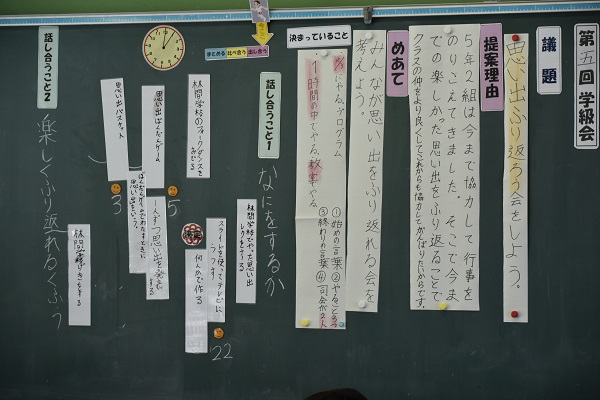 第五回 学級会
議題
思い出ふり返ろう会をしよう。
提案理由
5年2組は今まで協力して行事を
のりこえてきました。そこで今ま
での楽しかった思い出をふり返ることで
クラスの仲をより良くしてこれからも協力してがんばりたいからです。
めあて
みんなが思い出をふり返れる会を
考えよう。
決まっていること
にやる。プログラム
1時間の中でやる。教室でやる
①始めの言葉②やること
③終わりの言葉④司会が2人
まとめる 比べ合う 出し合う
話し合うこと1
なにをするか
林間学校のフォークダンスを
みんなで
林間学校でやった思い出
スライドを使ってテレビに
うつす
決定
何人かで作る
22
思い出ばくだんゲーム
5
一人ずつ思い出を発表
する
思い出バスケット
3
ばくだんゲームでわたすときに
思い出をいう。
林間
話し合うこと2
楽しくふり返れるくふう